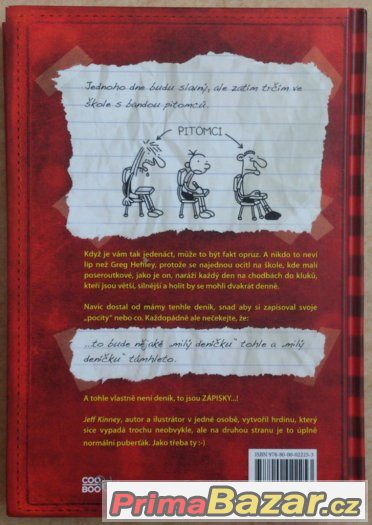 Jednoho dne budu slavný, ale zatím trčím ve
škole s bandou pitomců.
PITOMCI
Když je vám tak jedenáct, může to být fakt opruz. A nikdo to neví
líp než Greg Heffley, protože se najednou ocitl na škole, kde malí
poseroutkové, jako je on, naráží každý den na chodbách do kluků,
kteří jsou větší, silnější a holit by se mohli dvakrát denně.
Navíc dostal od mámy tenhle deník, snad aby si zapisoval svoje
„pocity“ nebo co. Každopádně ale nečekejte, že:
...to bude nějaké „milý deníčku“ tohle a „milý
deníčku“ támhleto.
A tohle vlastně není deník, to jsou ZÁPISKY...!
Jeff Kinney, autor a ilustrátor v jedné osobě, vytvořil hrdinu, který
sice vypadá trochu neobvykle, ale na druhou stranu je to úplně
normální puberťák. Jako třeba ty :-)
ISBN 978-80-00-02225-3
COO
BOO
PrimaBazar.cz